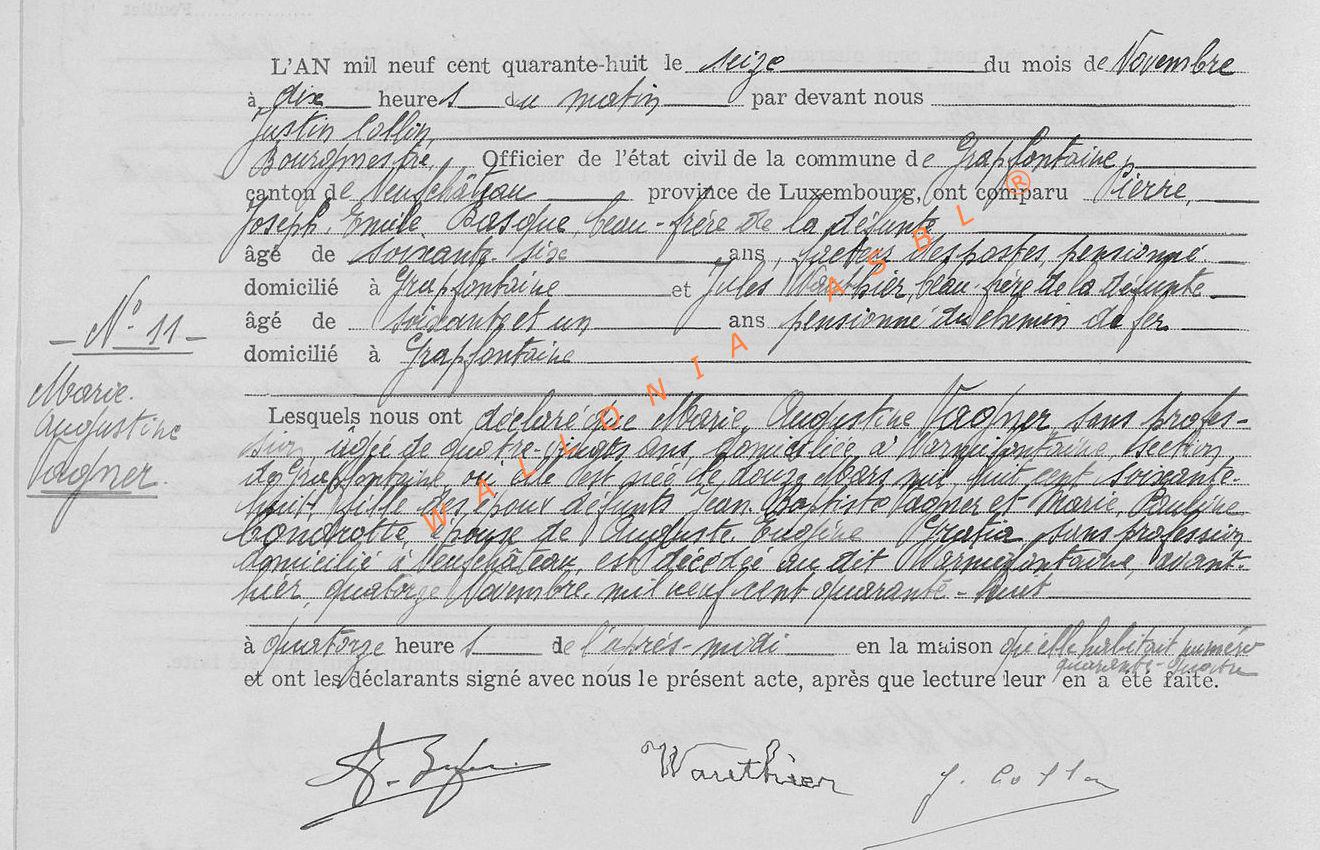 L'AN mil neuf cent quarante-huit le seize du mois de Novembre
à dix heures du matin par devant nous
Justin Collin,
Bourgmestre, Officier de l'état civil de la commune de Grapfontaine,
canton de Neufchâteau province de Luxembourg, ont comparu Pierre,
Joseph, Emile, Basque, beau-frère de la défunte
âgé de soixante-six ans, facteur des postes pensionné
domicilié à Grapfontaine et Jules Wauthier beau-frère de la défunte
âgé de soixante et un ans pensionné du chemin de fer
domicilié à Grapfontaine
N° 11
Marie
Augustine
Vagner
Lesquels nous ont déclaré que Marie, Augustine Vagner, sans profes-
sion, âgée de quatre-vingts ans, domiciliée à Warmifontaine, section
de Grapfontaine, où elle est née le douze Mars mil huit cent soixante-
huit, fille des époux défunts Jean-Baptiste Vagner et Marie, Pauline
épouse de Auguste, Eugène sans profession
domicilié à Neufchâteau, est décédée au dit Warmifontaine, avant-
hier, quatorze Novembre, mil neuf cent quarante-huit
à quatorze heures de l'après-midi en la maison qu'elle habitait numéro
quarante-quatre
et ont les déclarants signé avec nous le présent acte, après que lecture leur en a été faite.
Wauthier J. Collin
WALLONIA ASBL ®